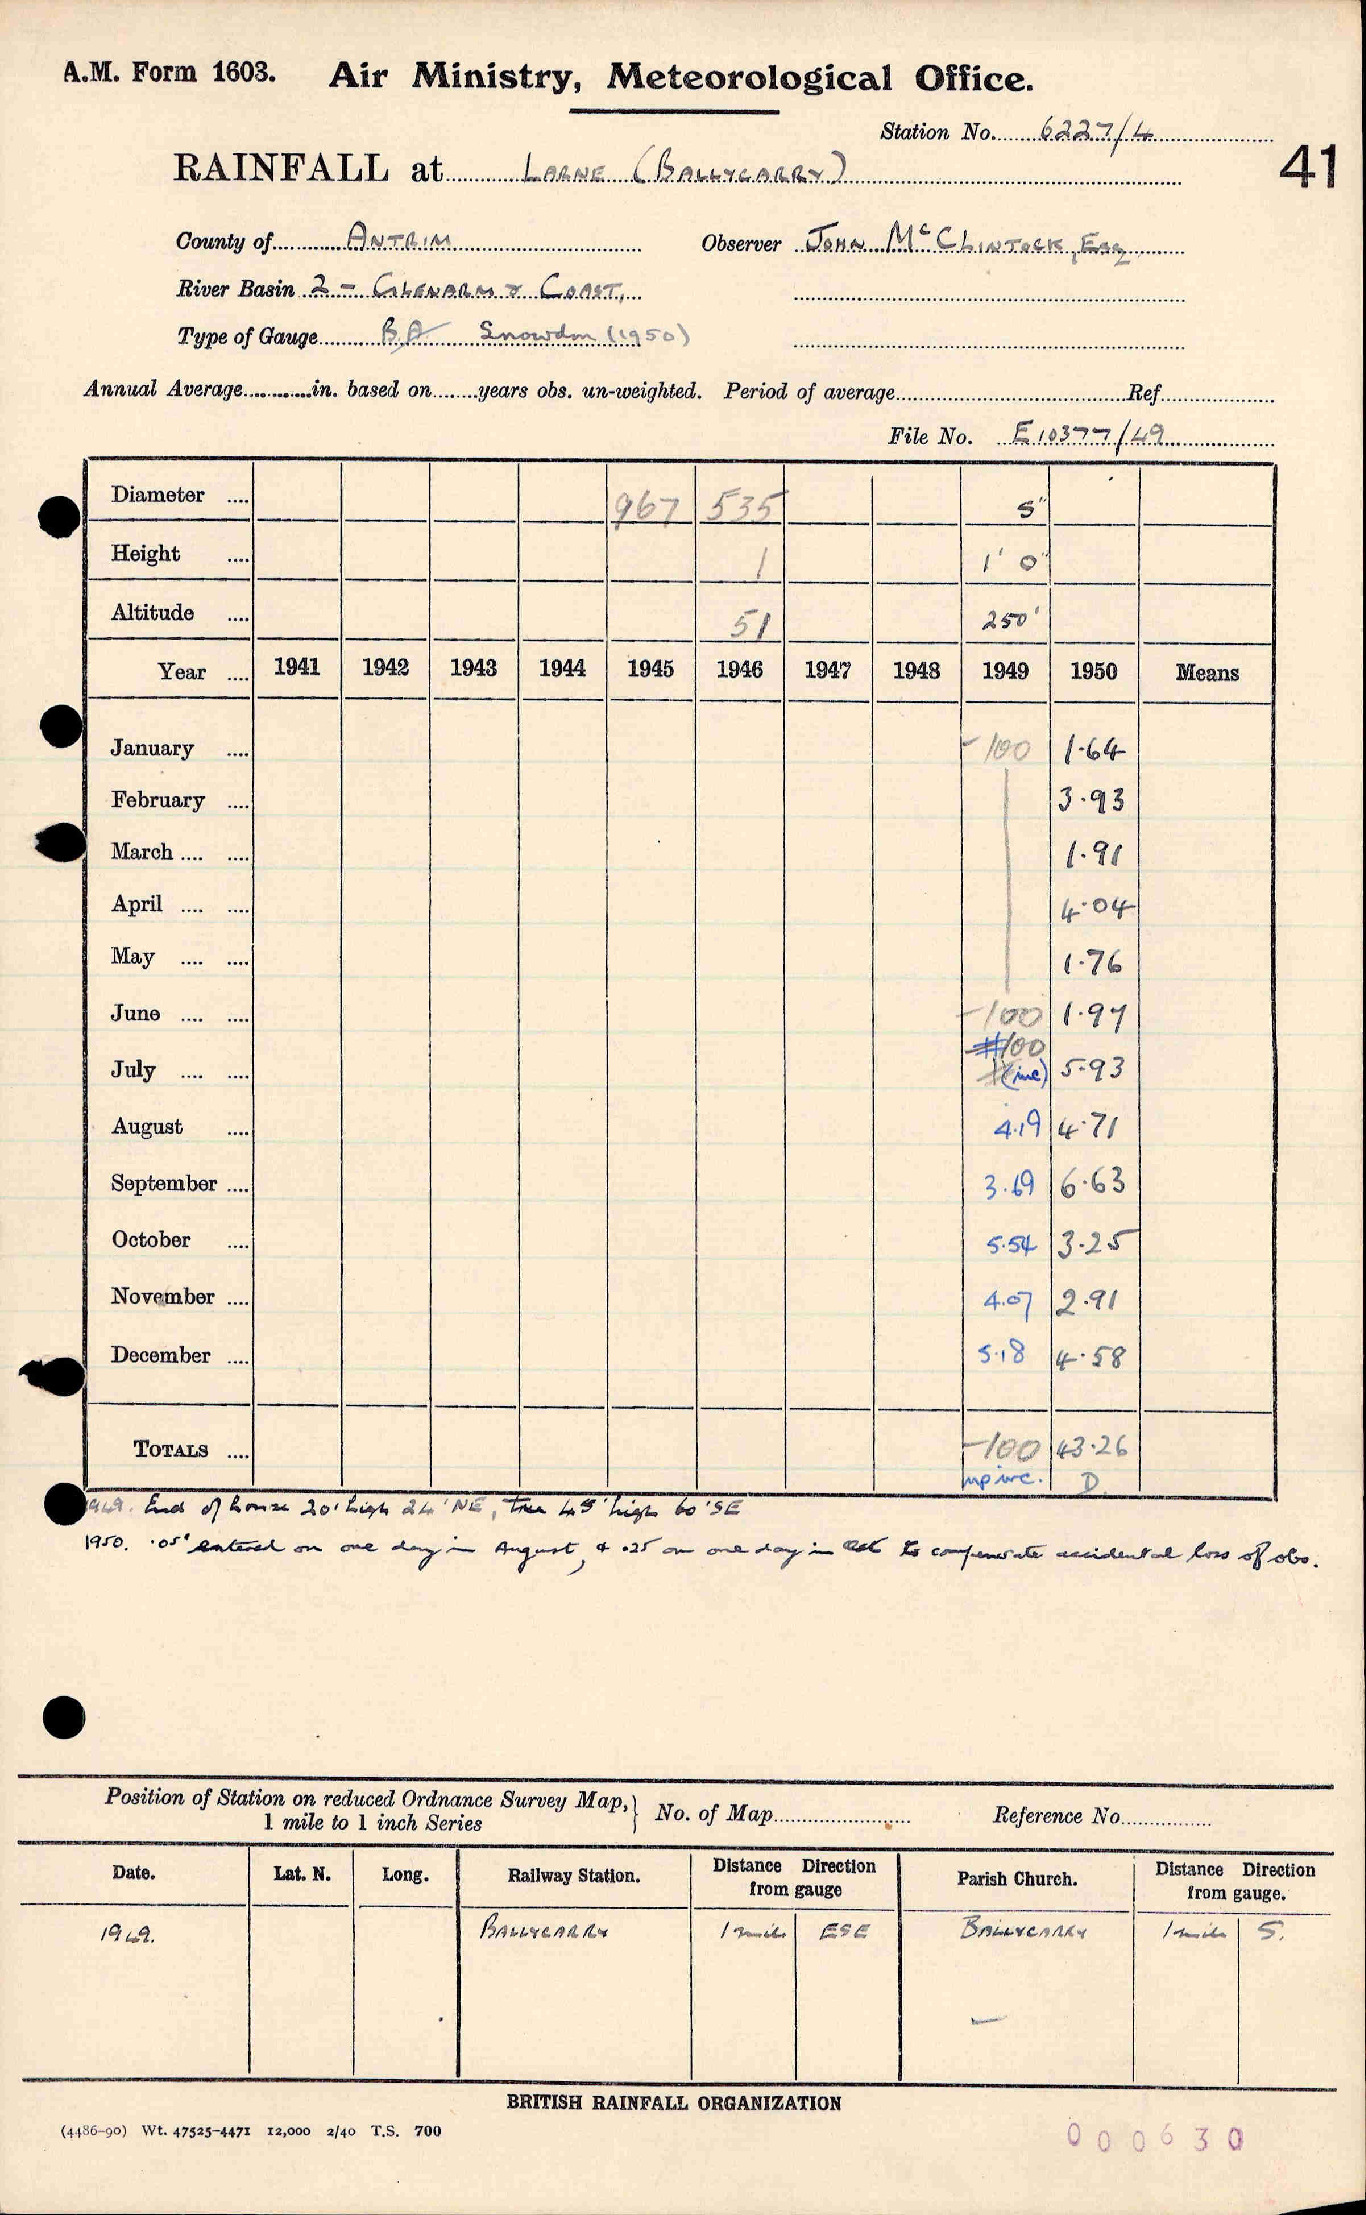 A.M. Form 1603. Air Ministry, Meteorological Office.
Station No. 6227/4
41
RAINFALL at LARNE (BALLYCARRY)
County of ANTRIM Observer JOHN McCLINTOCK, Esq
River Basin 2 - GLENARM & COAST,
Type of Gauge B.A. Snowdon (1950)
Annual Average in. based on years obs. un-weighted. Period of average Ref.
File No. E10377/49
Diameter 967 535 5"
Height 1 1' 0"
Altitude 51 250'
Year 1941 1942 1943 1944 1945 1946 1947 1948 1949 1950 Means
January -100 1.64
February 3.93
March 1.91
April 4.04
May 1.76
June -100 1.97
100
July (inc) 5.93
August 4.19 4.71
September 3.69 6.63
October 5.54 3.25
November 4.07 2.91
December 5.18 4.58
TOTALS -100 43.26
inc. D
1949. End of house 20' high 24' NE, tree 45' high 60' SE
1950. .05" entered on one day in August, & .25 on one day in Oct to compensate accidental loss of obs.
Position of Station on reduced Ordnance Survey Map, 1 mile to 1 inch Series } No. of Map Reference No.
Date. Lat. N. Long. Railway Station. Distance Direction from gauge Parish Church. Distance Direction from gauge.
1949. BALLYCARRY 1 mile ESE BALLYCARRY 1 mile S.
BRITISH RAINFALL ORGANIZATION
(4486-90) Wt. 47525-4471 12,000 2/40 T.S. 700
000630